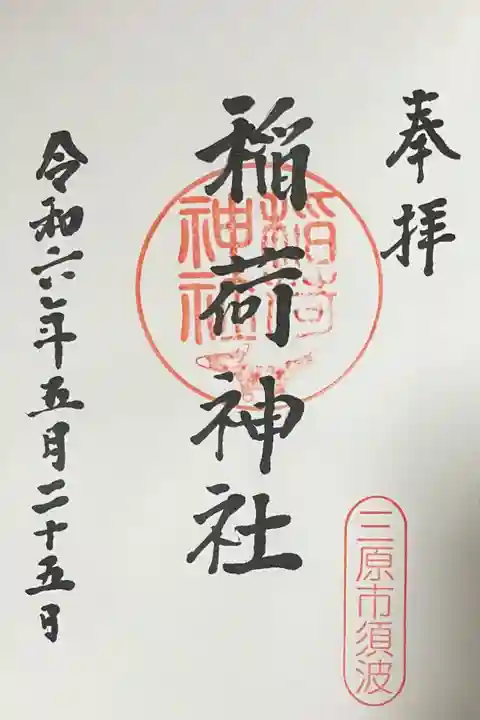 奉拝
稲荷神社
稲荷
神社
三原市須波
令和六年五月二十五日